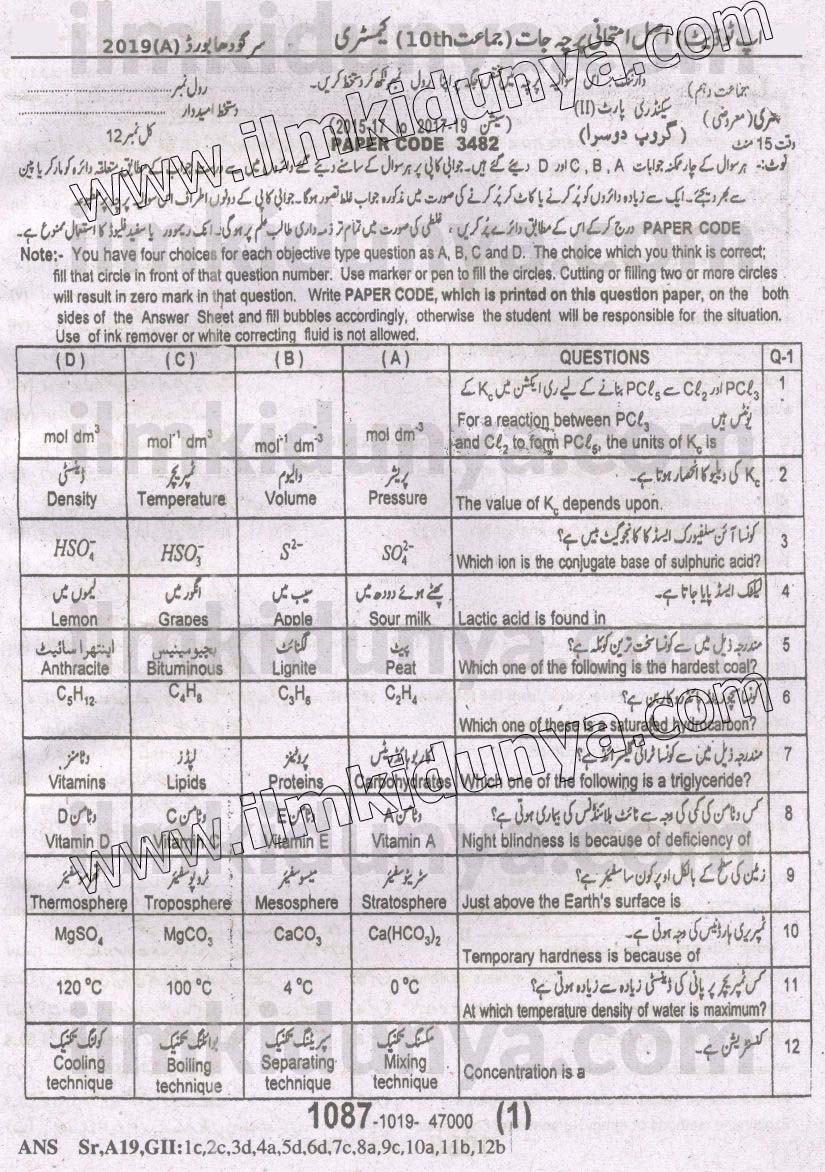 اپ ٹو ڈیٹ) اصل امتحانی پرچہ جات (جماعت 10th) کیمسٹری سرگودھا بورڈ (A) 2019
www.ilmkidunya.com
رول نمبر
جماعت دہم)
دستخط امیدوار
سیکنڈری پارٹ (II)
(معروضی)
(سیشن 2017-19 to 2015-17)
کل نمبر 12
PAPER CODE 3482
(گروپ دوسرا)
وقت 15 منٹ
نوٹ:- ہر سوال کے چار ممکنہ جوابات A ، B ، C اور D دیئے گئے ہیں۔ جوابی کاپی پر ہر سوال کے سامنے دیئے گئے دائروں میں سے کے مطابق متعلقہ دائرہ کو مارکر یا پین
سے بھر دیجئے۔ ایک سے زیادہ دائروں کو پُر کرنے یا کاٹ کر پُر کرنے کی صورت میں مذکورہ جواب غلط تصور ہوگا۔ جوابی کاپی کے دونوں اطراف
PAPER CODE درج کرکے اس کے مطابق دائرے پُر کریں، غلطی کی صورت میں تمام تر ذمہ داری طالب علم پر ہوگی۔ انک ریموور یا سفید فلیوڈ کا استعمال ممنوع ہے۔
Note:- You have four choices for each objective type question as A, B, C and D. The choice which you think is correct;
fill that circle in front of that question number. Use marker or pen to fill the circles. Cutting or filling two or more circles
will result in zero mark in that question. Write PAPER CODE, which is printed on this question paper, on the both
sides of the Answer Sheet and fill bubbles accordingly, otherwise the student will be responsible for the situation.
Use of ink remover or white correcting fluid is not allowed.
(D) (C) (B) (A) QUESTIONS Q-1
PCℓ₃ اور Cℓ₂ سے PCℓ₅ بنانے کے لیے ری ایکشن میں Kc کے 1
یونٹس ہیں
For a reaction between PCℓ₃
mol dm³ mol⁻¹ dm³ mol⁻¹ dm⁻³ mol dm⁻³ and Cℓ₂ to form PCℓ₅, the units of Kc is
ڈینسٹی ٹمپریچر والیوم پریشر Kc کی ویلیو کا انحصار ہوتا ہے۔ 2
Density Temperature Volume Pressure The value of Kc depends upon.
کونسا آئن سلفیورک ایسڈ کا کانجوگیٹ بیس ہے؟ 3
HSO₄⁻ HSO₃⁻ S²⁻ SO₄²⁻ Which ion is the conjugate base of sulphuric acid?
لیموں میں انگور میں سیب میں پھٹے ہوئے دودھ میں لیکٹک ایسڈ پایا جاتا ہے۔ 4
Lemon Grapes Apple Sour milk Lactic acid is found in
اینتھراسائیٹ بچیومینیس لگنائٹ پیٹ مندرجہ ذیل میں سے کونسا سخت ترین کوئلہ ہے؟ 5
Anthracite Bituminous Lignite Peat Which one of the following is the hardest coal?
C₅H₁₂ C₄H₈ C₃H₆ C₂H₄ 6
Which one of these is a saturated hydrocarbon?
وٹامنز لپڈز پروٹینز کاربوہائڈریٹس مندرجہ ذیل میں سے کونسا ٹرائی گلیسرائڈ ہے؟ 7
Vitamins Lipids Proteins Carbohydrates Which one of the following is a triglyceride?
وٹامن D وٹامن C وٹامن E وٹامن A کس وٹامن کی کمی کی وجہ سے نائٹ بلائنڈنس کی بیماری ہوتی ہے؟ 8
Vitamin D Vitamin C Vitamin E Vitamin A Night blindness is because of deficiency of
تھرموسفیئر ٹروپوسفیئر میسوسفیئر سٹریٹوسفیئر زمین کی سطح کے بالکل اوپر کون سا سفیئر ہے؟ 9
Thermosphere Troposphere Mesosphere Stratosphere Just above the Earth's surface is
MgSO₄ MgCO₃ CaCO₃ Ca(HCO₃)₂ ٹمپریری ہارڈنیس کی وجہ ہوتی ہے۔ 10
Temporary hardness is because of
کس ٹمپریچر پر پانی کی ڈینسٹی زیادہ سے زیادہ ہوتی ہے؟ 11
120 °C 100 °C 4 °C 0 °C At which temperature density of water is maximum?
کولنگ تکنیک بوائلنگ تکنیک سپریٹنگ تکنیک مکسنگ تکنیک کنسنٹریشن ہے۔ 12
Cooling technique Boiling technique Separating technique Mixing technique Concentration is a
1087-1019- 47000 (1)
ANS Sr,A19,GII:1c,2c,3d,4a,5d,6d,7c,8a,9c,10a,11b,12b